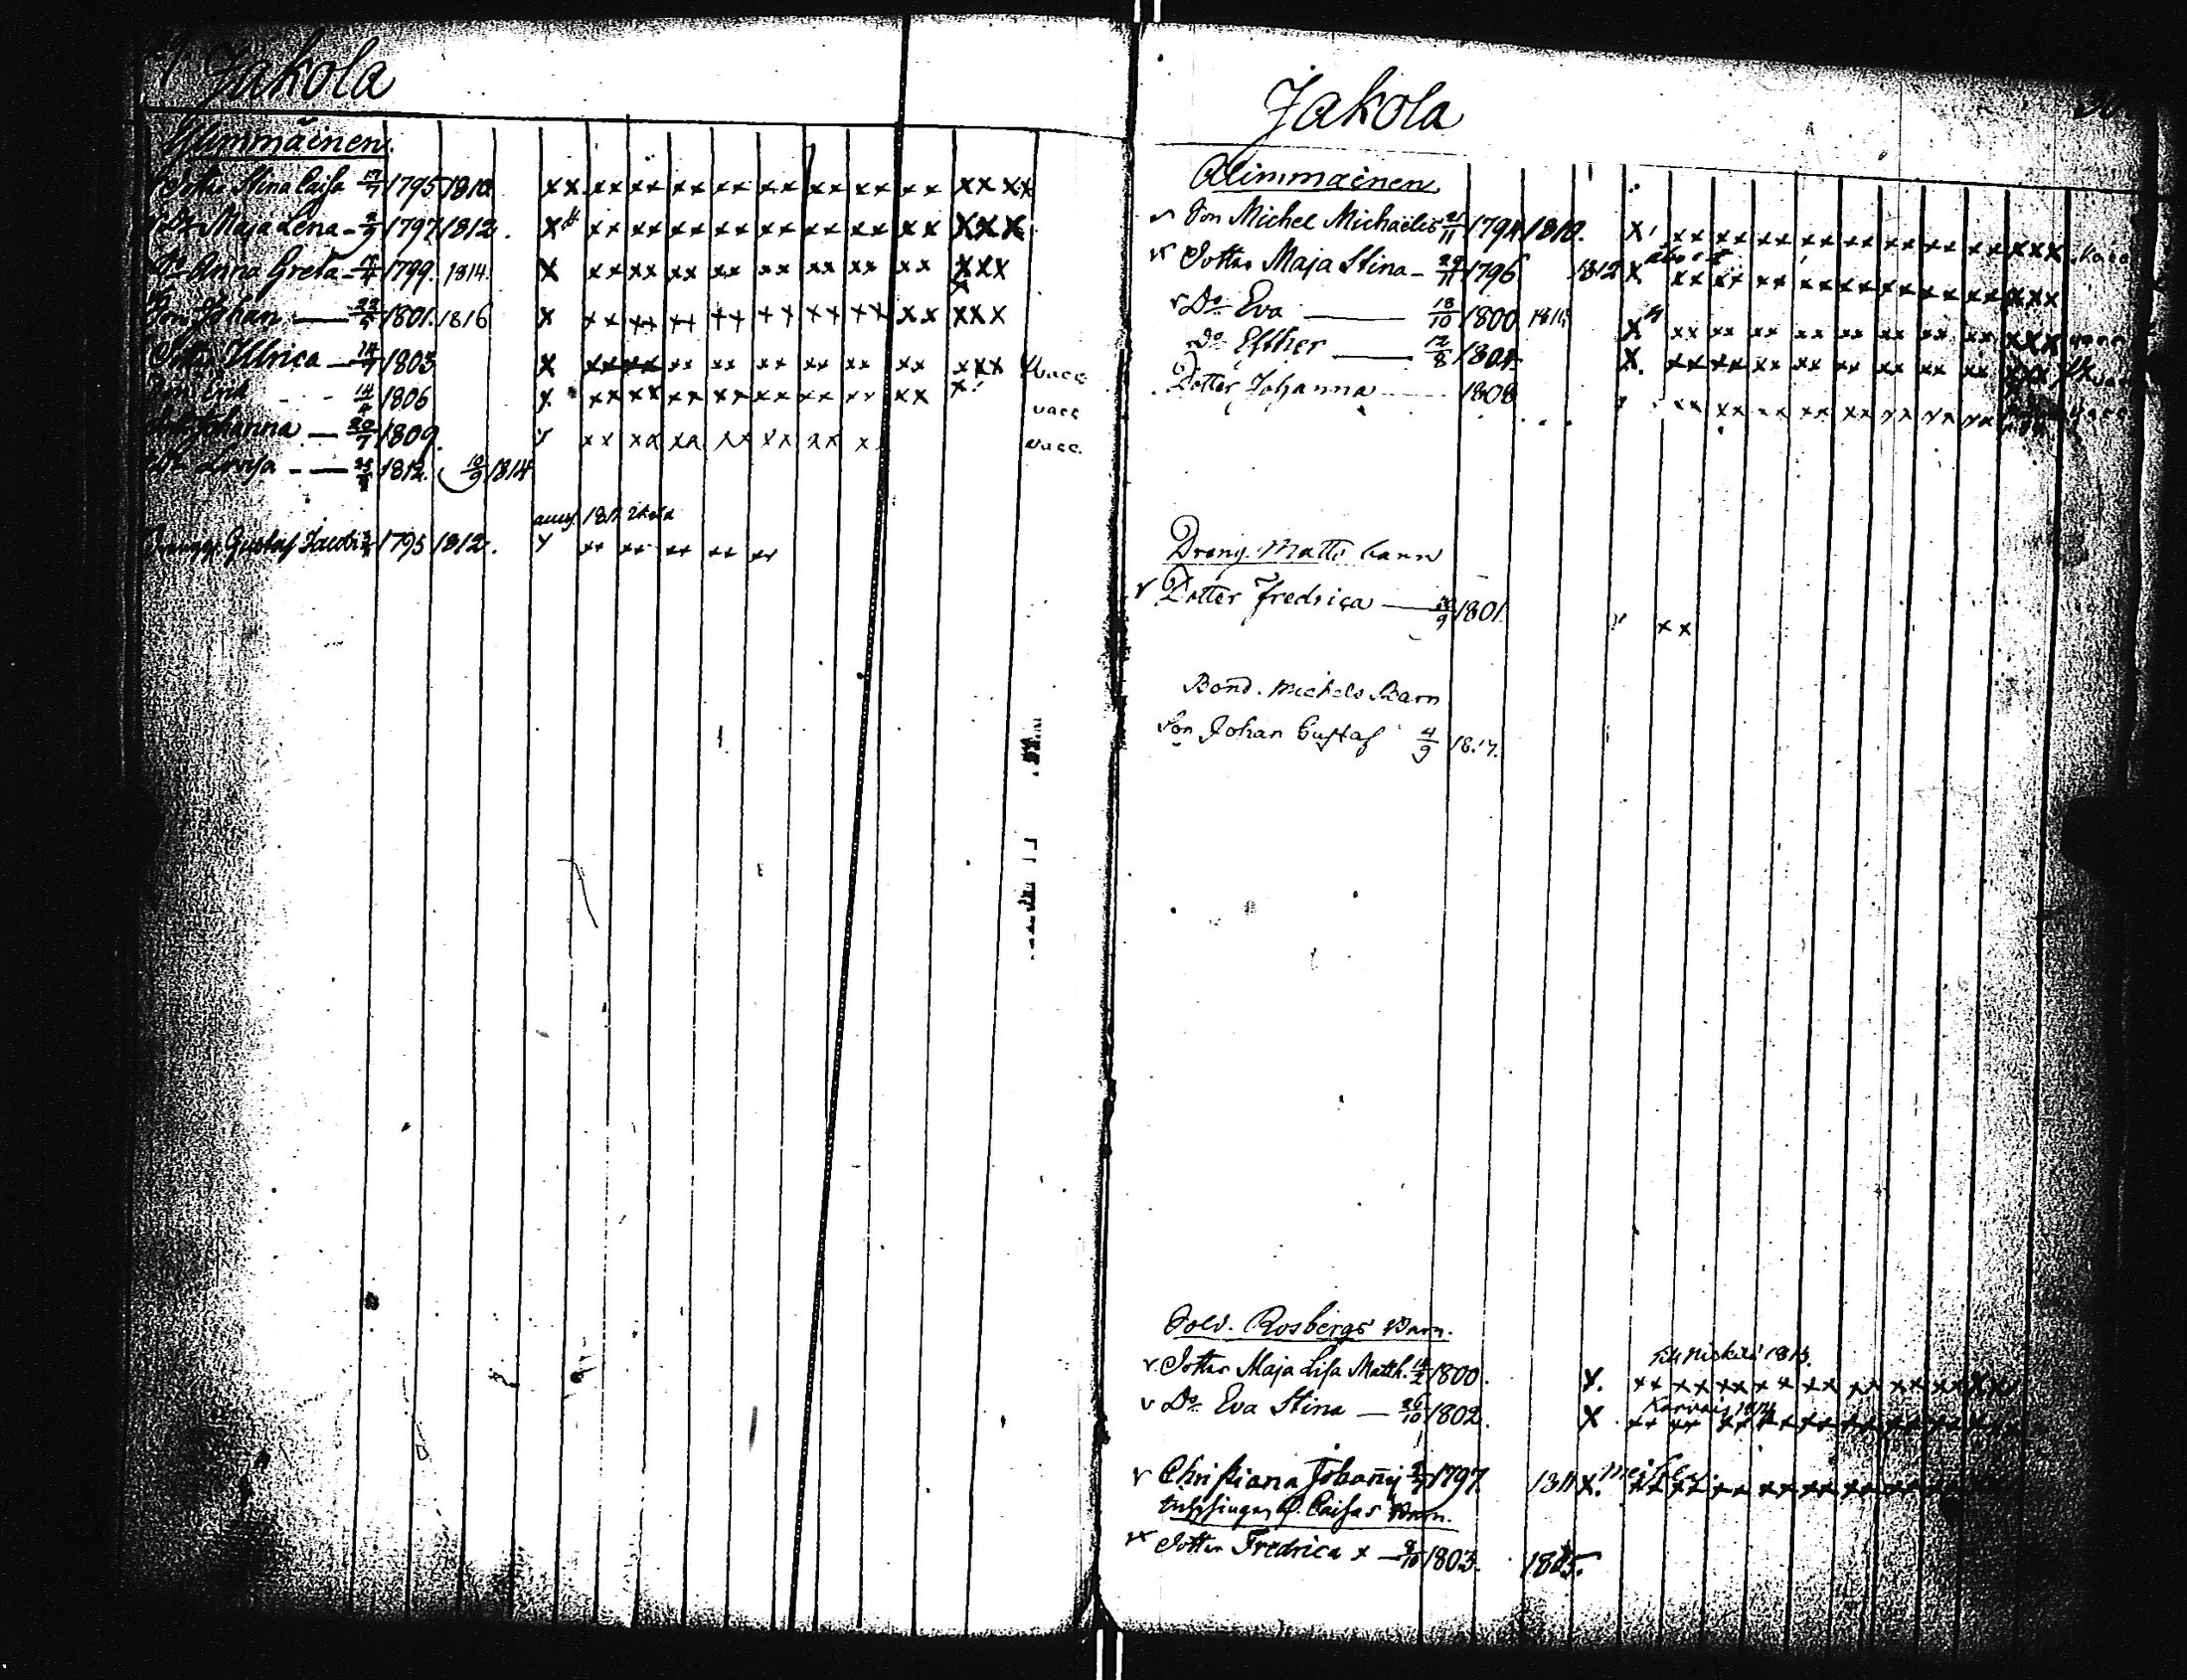 Jakola
Ylimmäinen.
Dotter Stina Caisa 1795 1810 xx xx xx xx xx xx xx xx xx xx xx
Do Maja Lena - 1797 1812. x xx xx xx xx xx xx xx xx xxx
Do Anna Greta - 1799. 1814. x xx xx xx xx xx xx xx xx xxx
Son Johan 22/5 1801. 1816 x xx xx xx xx xx xx xx xx xxx
Dotter Ulrica 1803 x xx xx xx xx xx xx xx xx xxx vacc
Son Erik 14/4 1806 x xx xx xx xx xx xx xx xx x vacc
Johanna 20/7 1809. xx xx xx xx xx xx x vacc.
Lovisa 1812. 10/9 1814
1812
Gustaf Jacobi 1795 1812. xx xx xx xx xx
Jakola
Alimmäinen
Son Michel Michaëlis 21/11 1794 1810. x xx xx xx xx xx xx xx xx xxx vacc
Dotter Maja Stina - 29/11 1796 1812 x xx xx xx xx xx xx xx xx xxx
Do Eva 18/10 1800. x xx xx xx xx xx xx xx xx xxx vacc
Do Esther 12/8 1804. x. xx xx xx xx xx xx xx xx xxx
Dotter Johanna 1808 xx xx xx xx xx xx xx xx vacc
Dräng. Matts barn
Dotter Fredrica 1801. xx
Bond. Michels Barn
Son Johan Gustaf 4/9 1817.
Sold. Rosbergs Barn.
Dotter Maja Lisa Matth. 1800. x. xx xx xx xx xx xx xx xx
Do Eva Stina 26/10 1802. x xx xx xx xx xx xx xx xx
Christiana Johanni 1797. 1811 x. xx xx xx xx xx xx
Caisas Barn.
Dotter Fredrica x 1803. 1815.